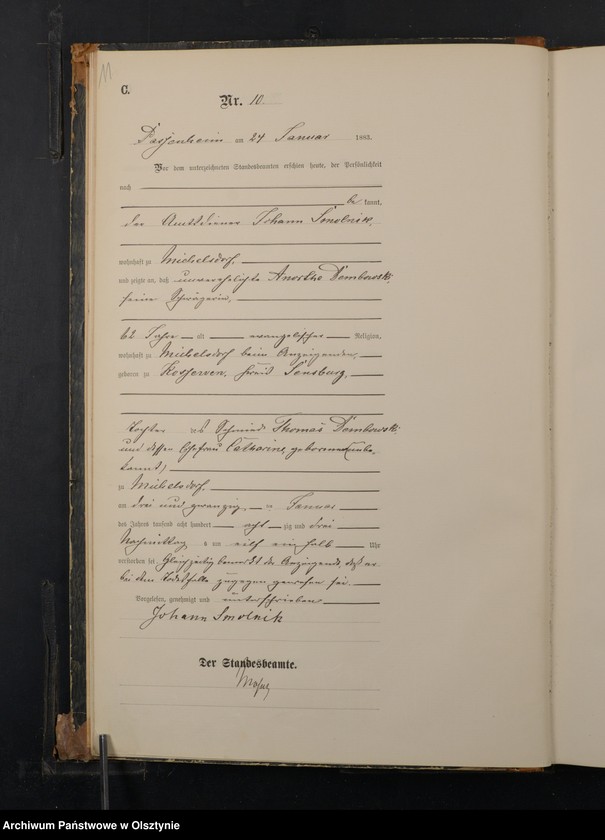 11
C.
Nr. 10.
Passenheim am 24 Januar 1883.
Vor dem unterzeichneten Standesbeamten erschien heute, der Persönlichkeit
nach
be kannt,
der Amtsdiener Johann Smolnik,
wohnhaft zu Michelsdorf.
und zeigte an, daß unverehelichte Anortha Dembowski,
seine Schwägerin,
62 Jahre alt evangelischer Religion,
wohnhaft zu Michelsdorf beim Anzeigenden,
geboren zu Kreis Sensburg,
Tochter des Schmied Thomas Dembowski
und dessen Ehefrau Catharine, geborene (unbe
kannt)
zu Michelsdorf.
am drei und zwanzig ten Januar
des Jahres tausend acht hundert acht zig und drei
Nachmittag s um eilf ein halb Uhr
verstorben sei. Gleichzeitig bemerkt der Anzeigende, daß er
bei dem Todesfalle zugegen gewesen sei.
Vorgelesen, genehmigt und unterschrieben
Johann Smolnik
Der Standesbeamte.
Archiwum Państwowe w Olsztynie